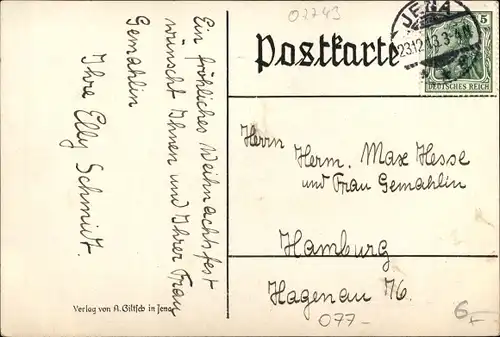 02743
Postkarte
JENA
23.12.13. 3-4 N.
5
DEUTSCHES REICH
Ein fröhliches Weihnachtsfest
wünscht Ihnen und Ihrer Frau
Gemahlin
Ihre Elly Schmidt.
Herrn
Herm. Max Hesse
und Frau Gemahlin
Hamburg
Hagenau 76.
077-
6,-
Verlag von A. Giltsch in Jena